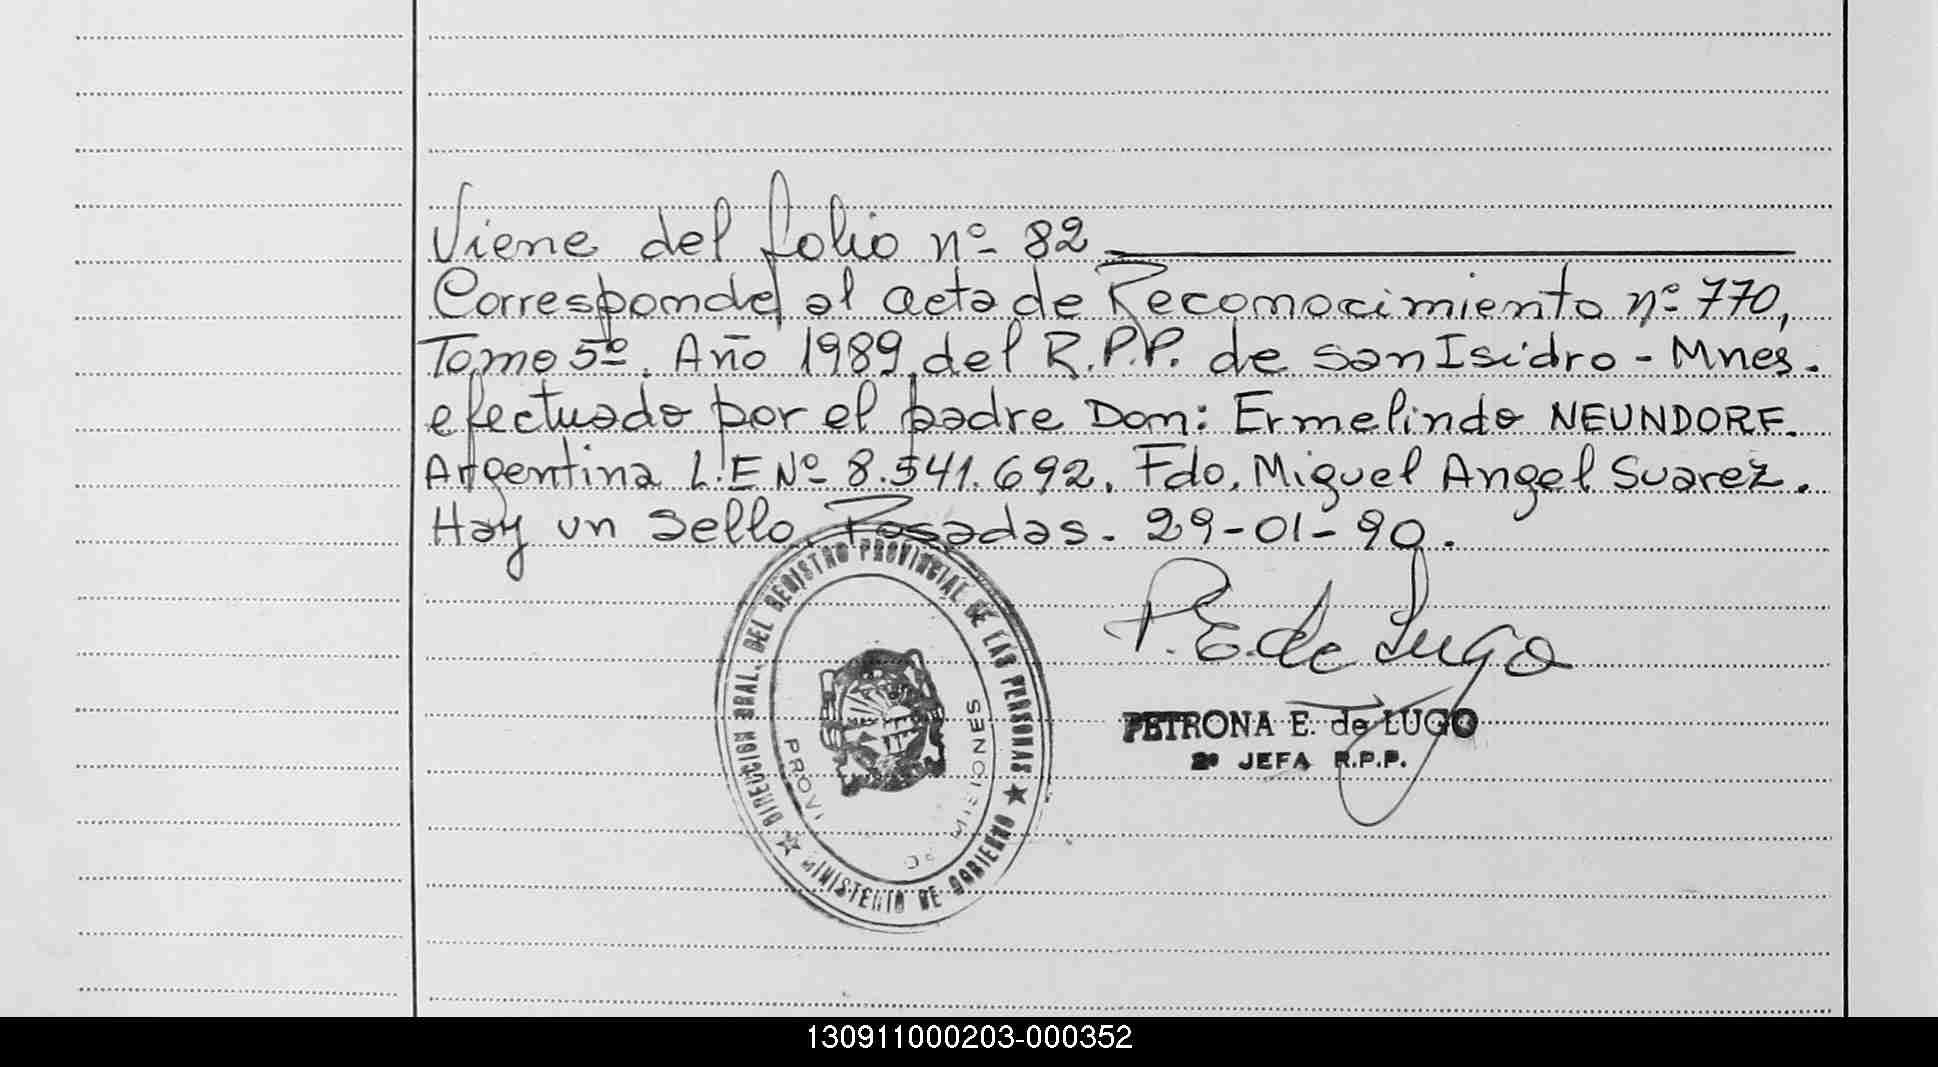 Viene del folio nº 82
Corresponde al acta de Reconocimiento nº 770,
Tomo 5º. Año 1989, del R.P.P. de San Isidro - Mnes.
efectuado por el padre Don: Ermelindo NEUNDORF.
Argentina L.E Nº 8.541.692. Fdo. Miguel Angel Suarez.
Hay un sello. Posadas. 29-01-90.
DIRECCION GRAL. DEL REGISTRO PROVINCIAL DE LAS PERSONAS
MINISTERIO DE GOBIERNO
PROVI
MISIONES
P. E. de Lugo
PETRONA E. de LUGO
2º JEFA R.P.P.
130911000203-000352